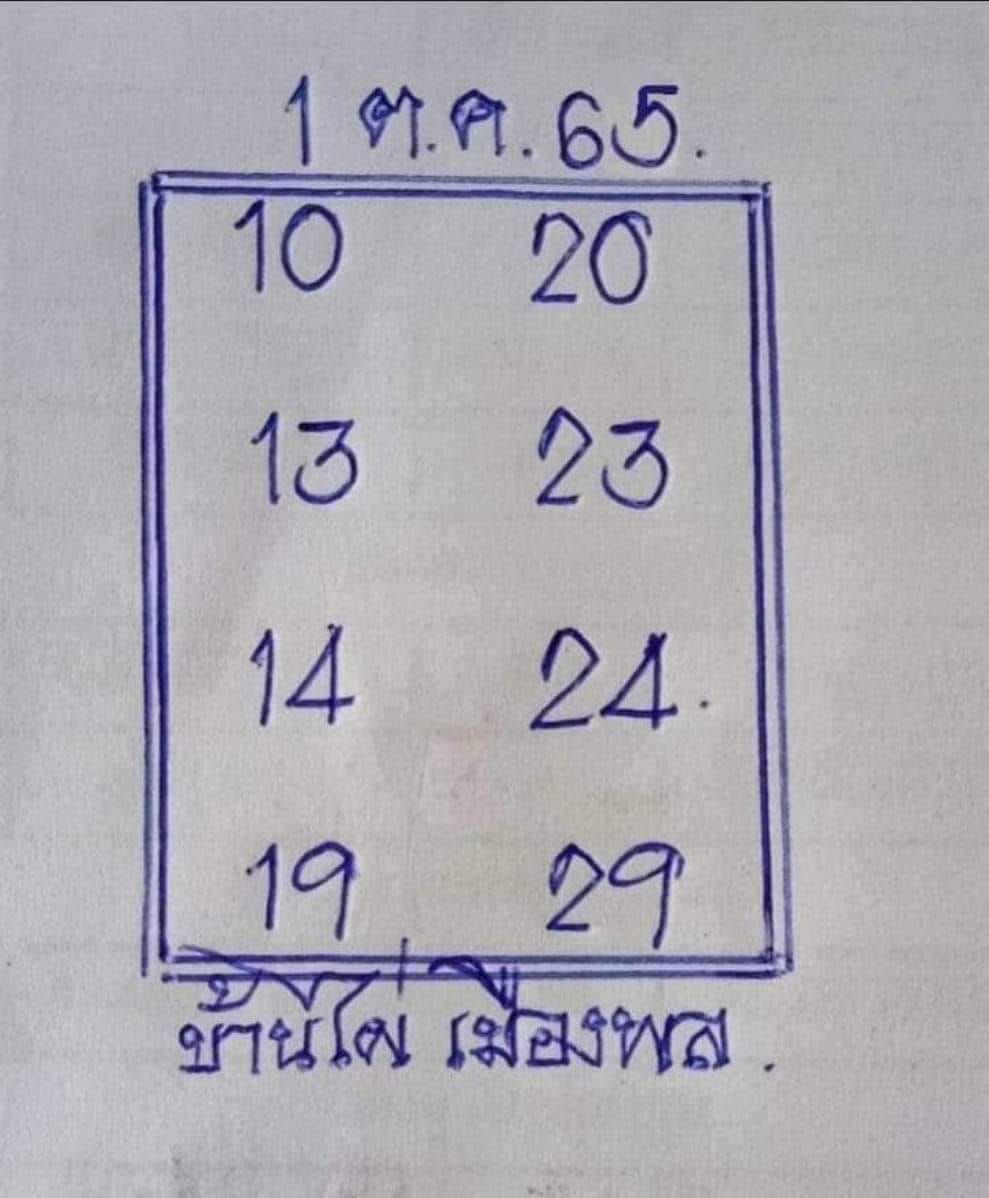 1 ต.ค. 65.
10 20
13 23
14 24.
19 29
บ้านไผ่ เมืองพล.